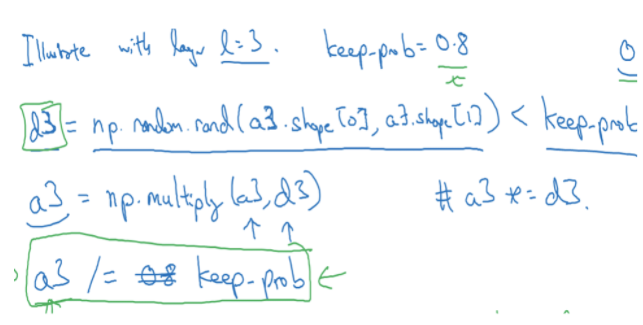 Illustrate with layer l=3. keep-prob= 0.8
d3 = np.random.rand(a3.shape[0], a3.shape[1]) < keep-prob
a3 = np.multiply(a3, d3) # a3 *= d3.
a3 /= 0.8 keep-prob